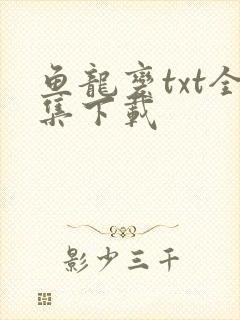 鱼龍變txt全
集下載
影少三千